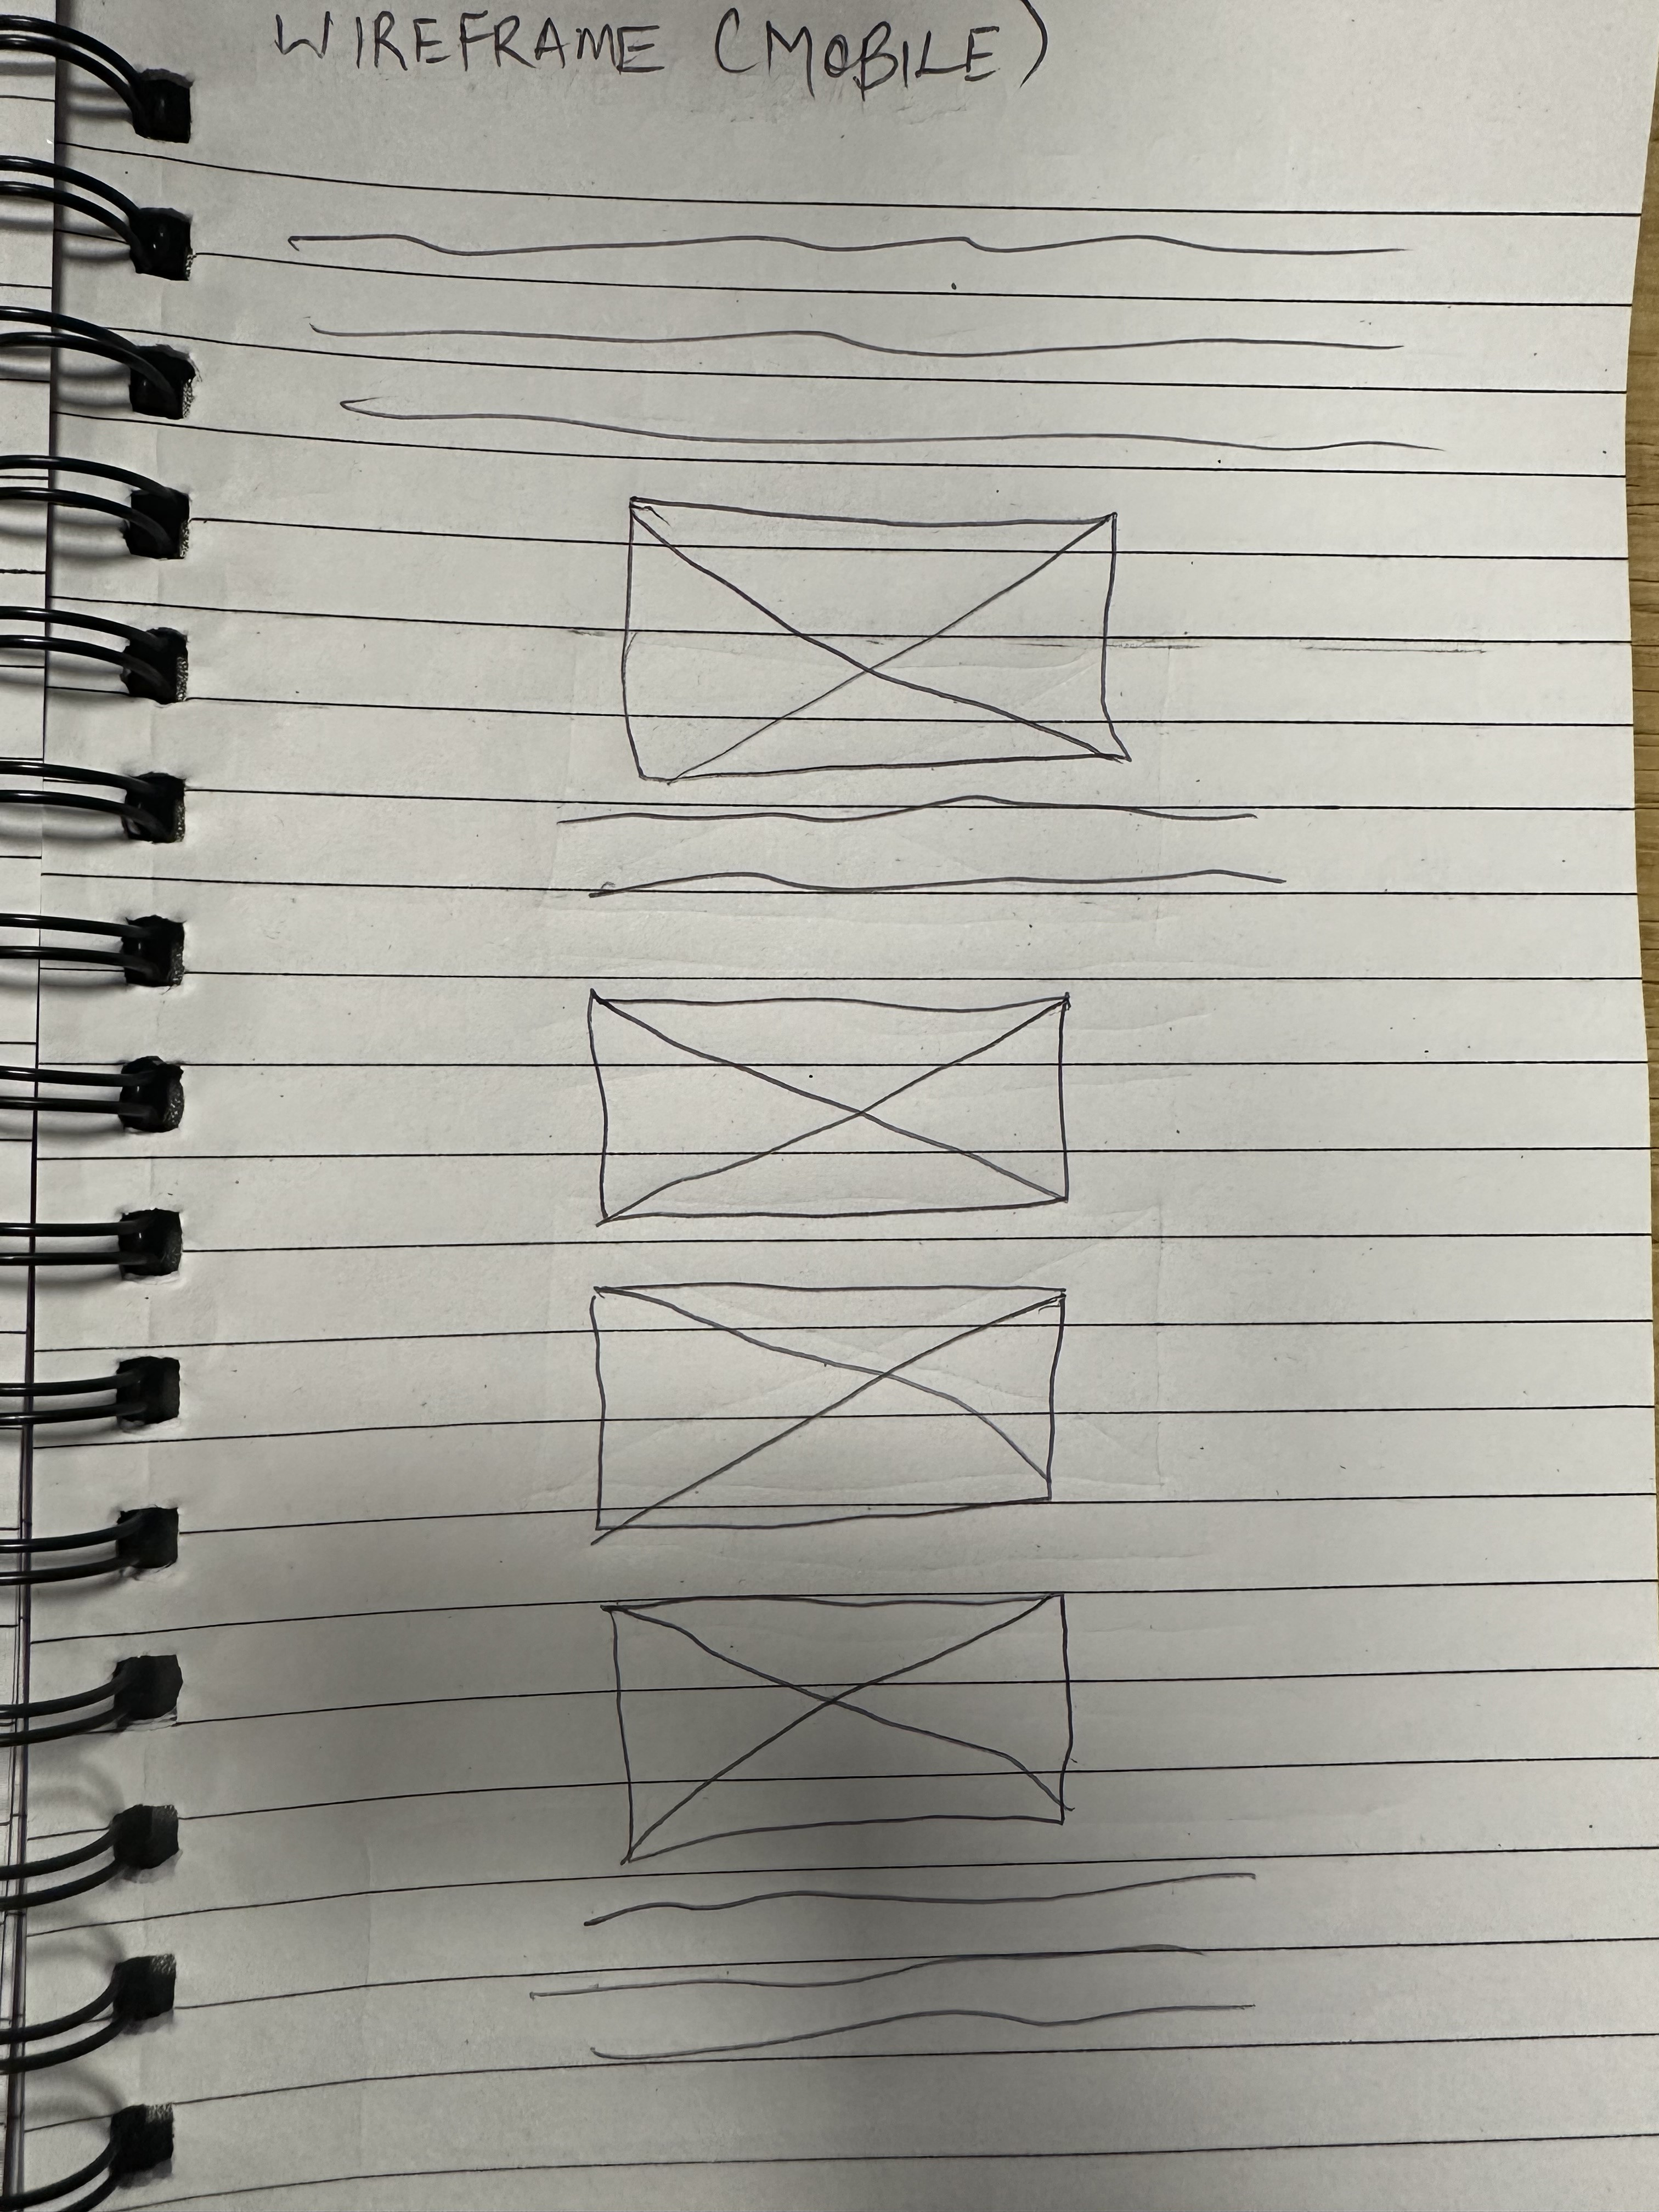 WIREFRAME (MOBILE)